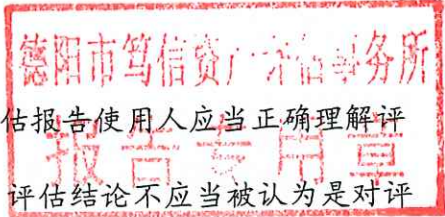 德阳市笃信资产评估事务所
估报告使用人应当正确理解评
报告专用章
评估结论不应当被认为是对评